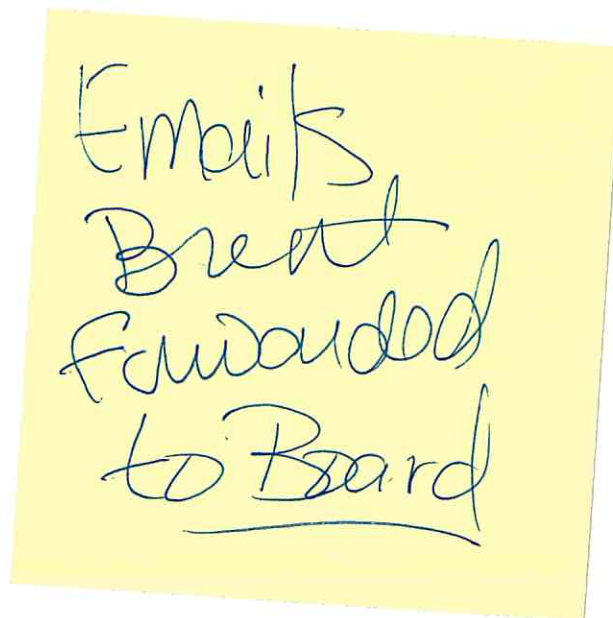 Emails
Brent
forwarded
to Board